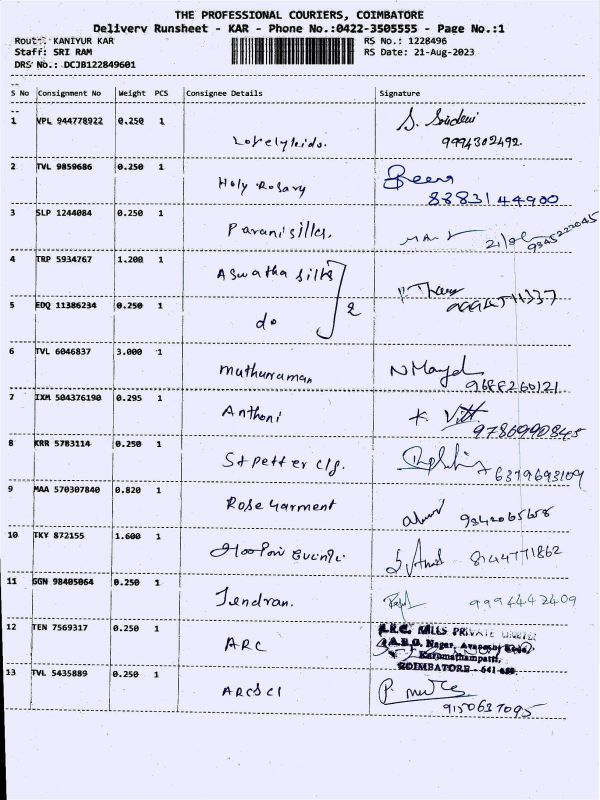 THE PROFESSIONAL COURIERS, COIMBATORE
Delivery Runsheet - KAR - Phone No.:0422-3505555 - Page No.:1
Route: KANIYUR KAR RS No.: 1228496
Staff: SRI RAM RS Date: 21-Aug-2023
DRS No.: DCJB122849601
S No Consignment No Weight PCS Consignee Details Signature
1 VPL 944778922 0.250 1
Lovelykids. 9994302492.
2 TVL 9859686 0.250 1
Holy Rosary 8883144900
3 SLP 1244084 0.250 1
Paranisilks.
4 TRP 5934767 1.200 1
Aswatha silks
5 EDQ 11386234 0.250 1
do 2
6 TVL 6046837 3.000 1
muthuraman 9688260121
7 IXM 504376190 0.295 1
Anthoni 9786990845
8 KRR 5783114 0.250 1
St petter clg. 6379693109
9 MAA 570307840 0.820 1
Rose Garment
10 TKY 872155 1.600 1
8144771862
11 GGN 98405064 0.250 1
Jendran. 9994442409
12 TEN 7569317 0.250 1
ARC
A.R.C. MILLS PRIVATE LIMITED
Nagar, Avanashi Road,
Karumathampatti,
COIMBATORE - 641 659.
13 TVL 5435889 0.250 1
9150637095